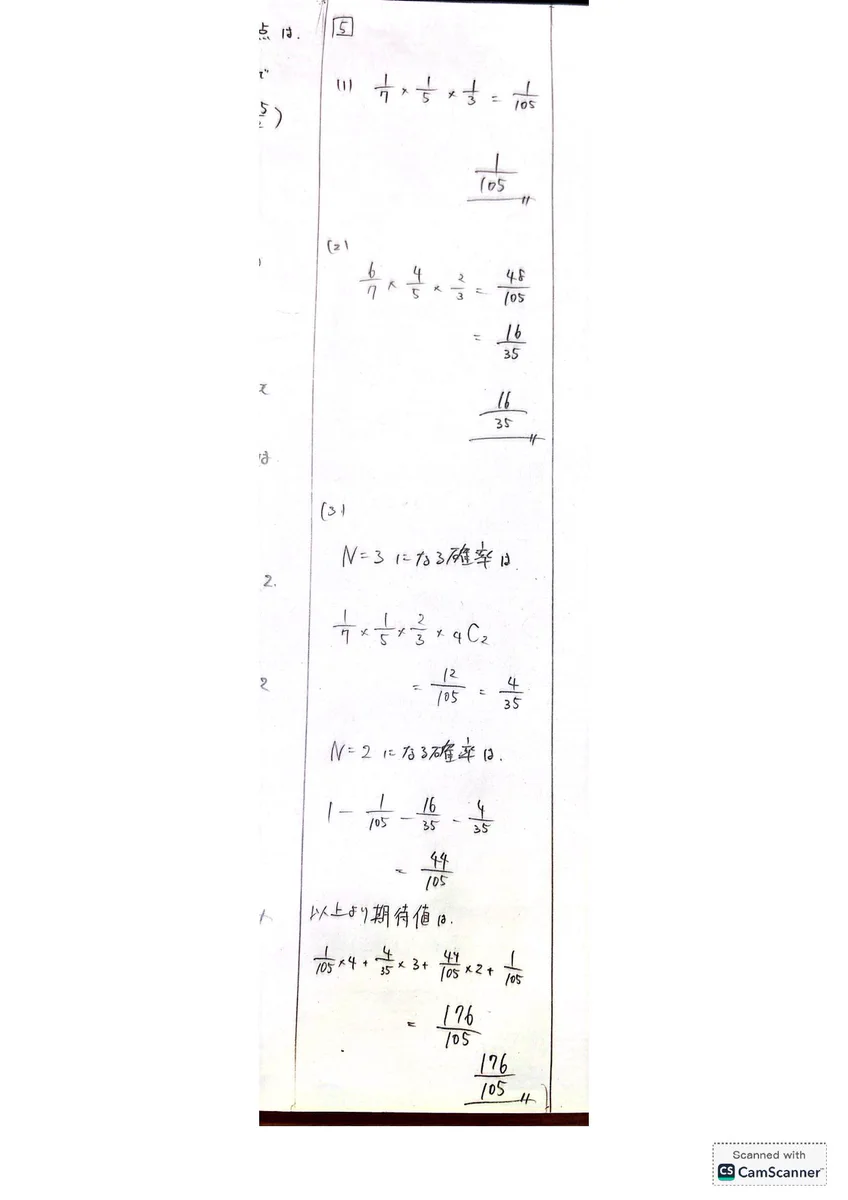 点は.
5
で
5/2)
(1) 1/7 × 1/5 × 1/3 = 1/105
1/105 〃
(2)
6/7 × 4/5 × 2/3 = 48/105
= 16/35
16/35 〃
は
(3)
N=3 になる確率は
2.
1/7 × 1/5 × 2/3 × 4C2
= 12/105 = 4/35
2
N=2 になる確率は.
1 - 1/105 - 16/35 - 4/35
= 44/105
以上より期待値は.
1/105 ×4 + 4/35 × 3 + 44/105 ×2 + 1/105
= 176/105
176/105 〃
Scanned with
CS CamScanner